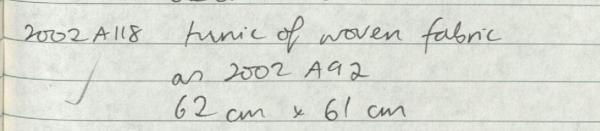 2002 A118 tunic of woven fabric
as 2002 A92
62 cm x 61 cm